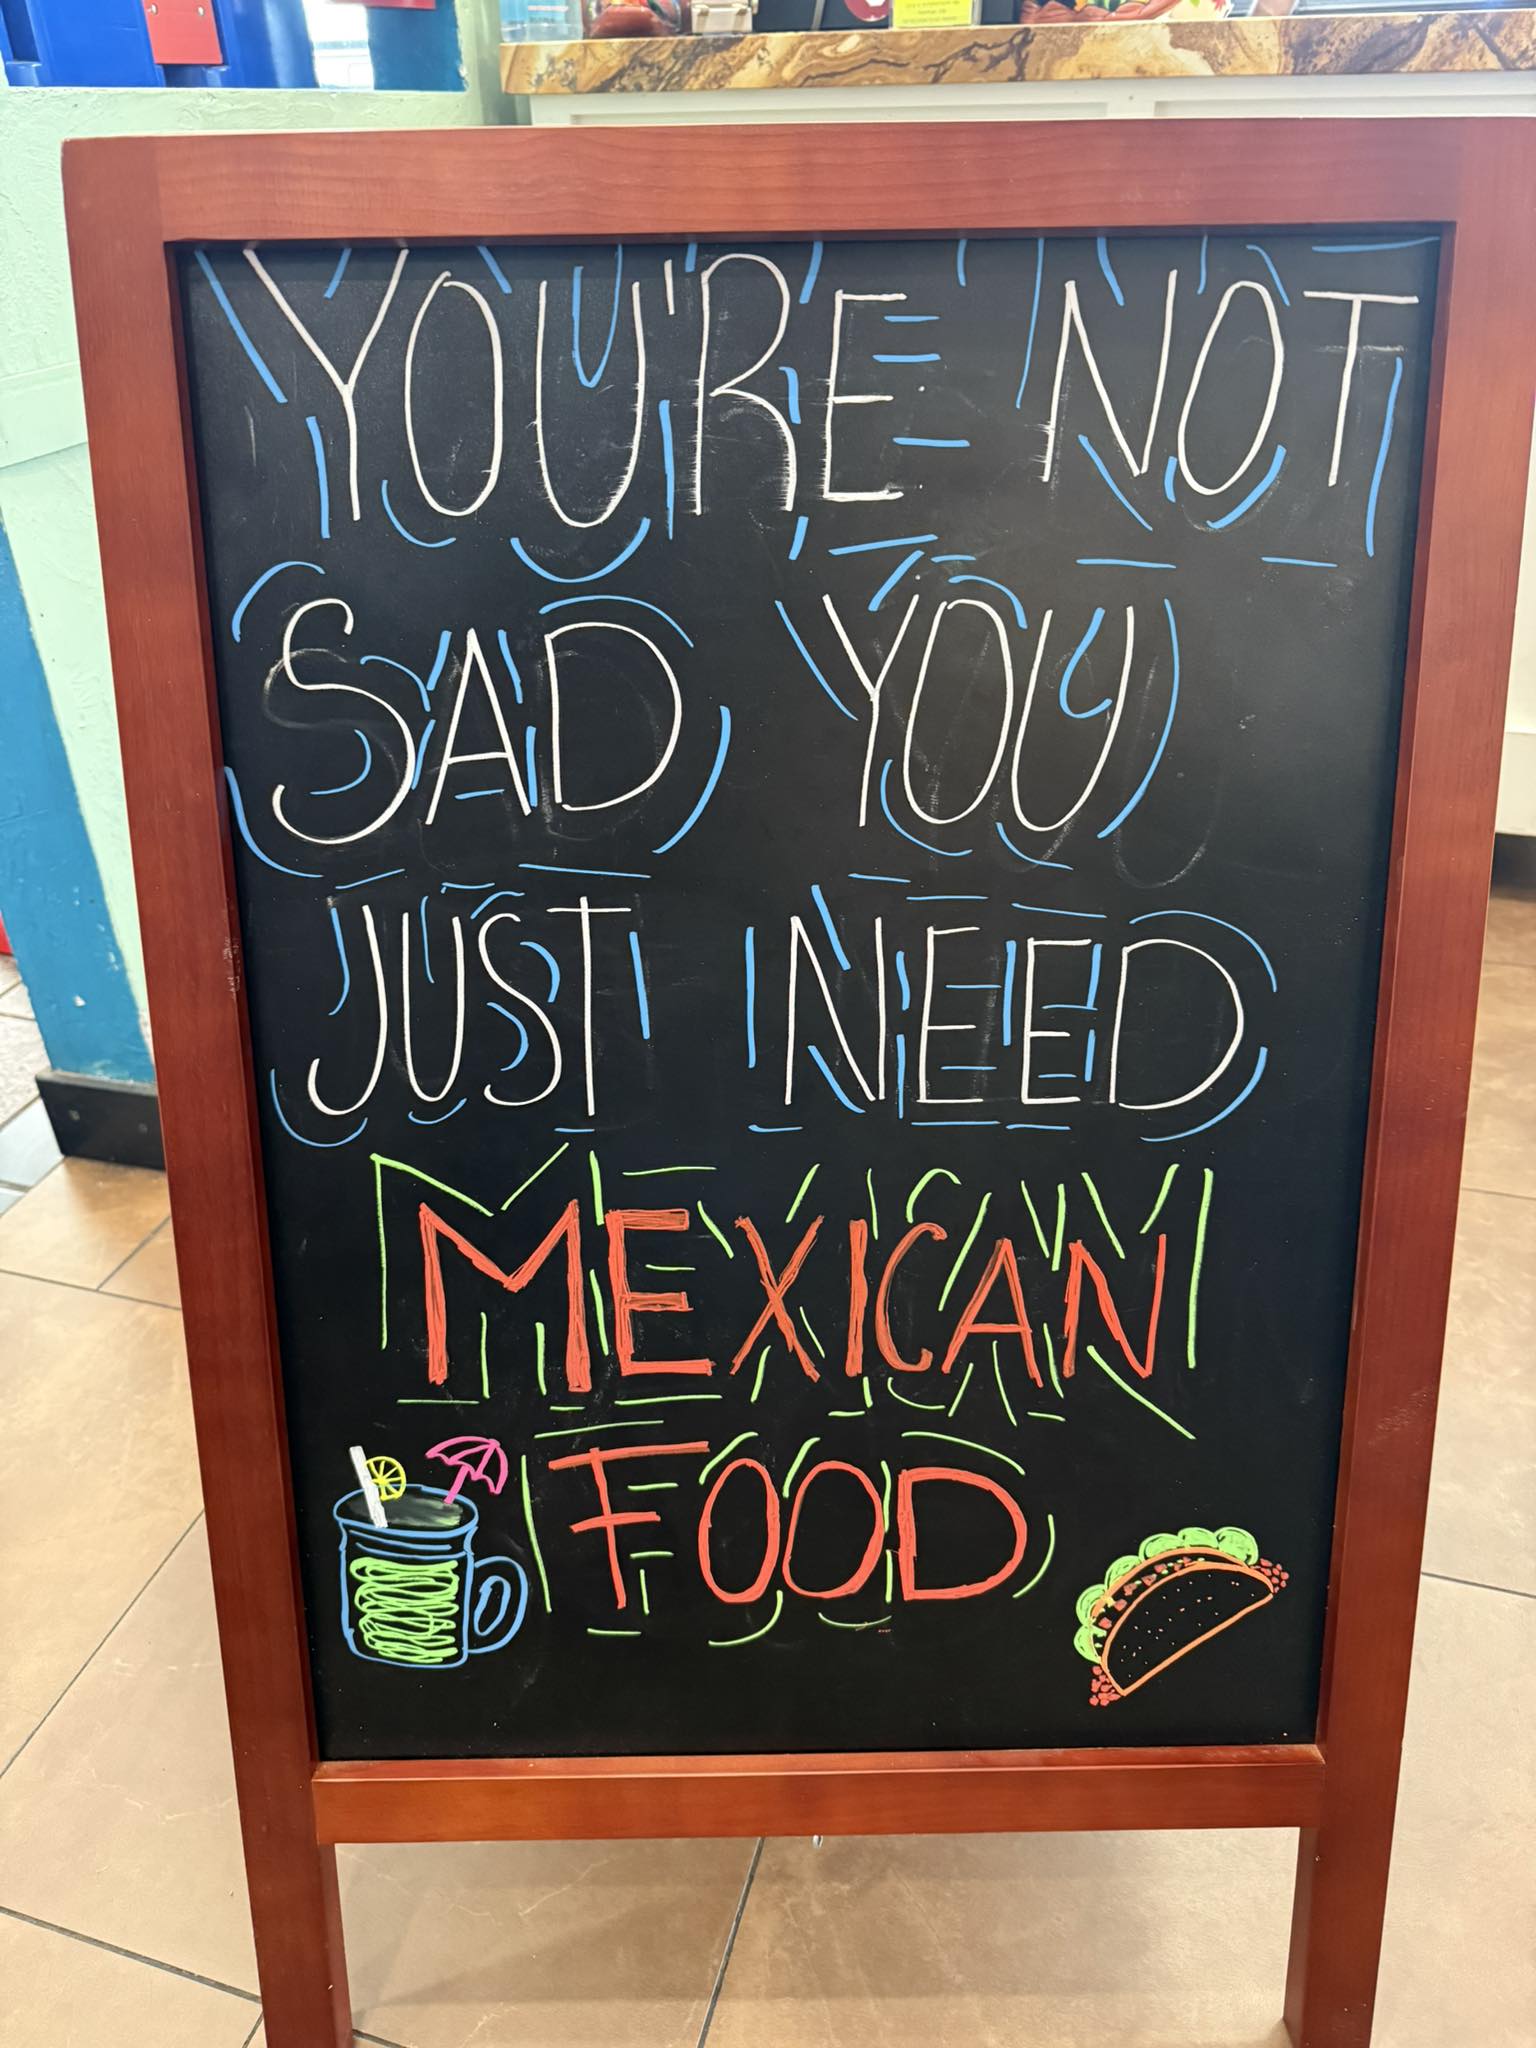 YOU'RE NOT
SAD YOU
JUST NEED
MEXICAN
FOOD